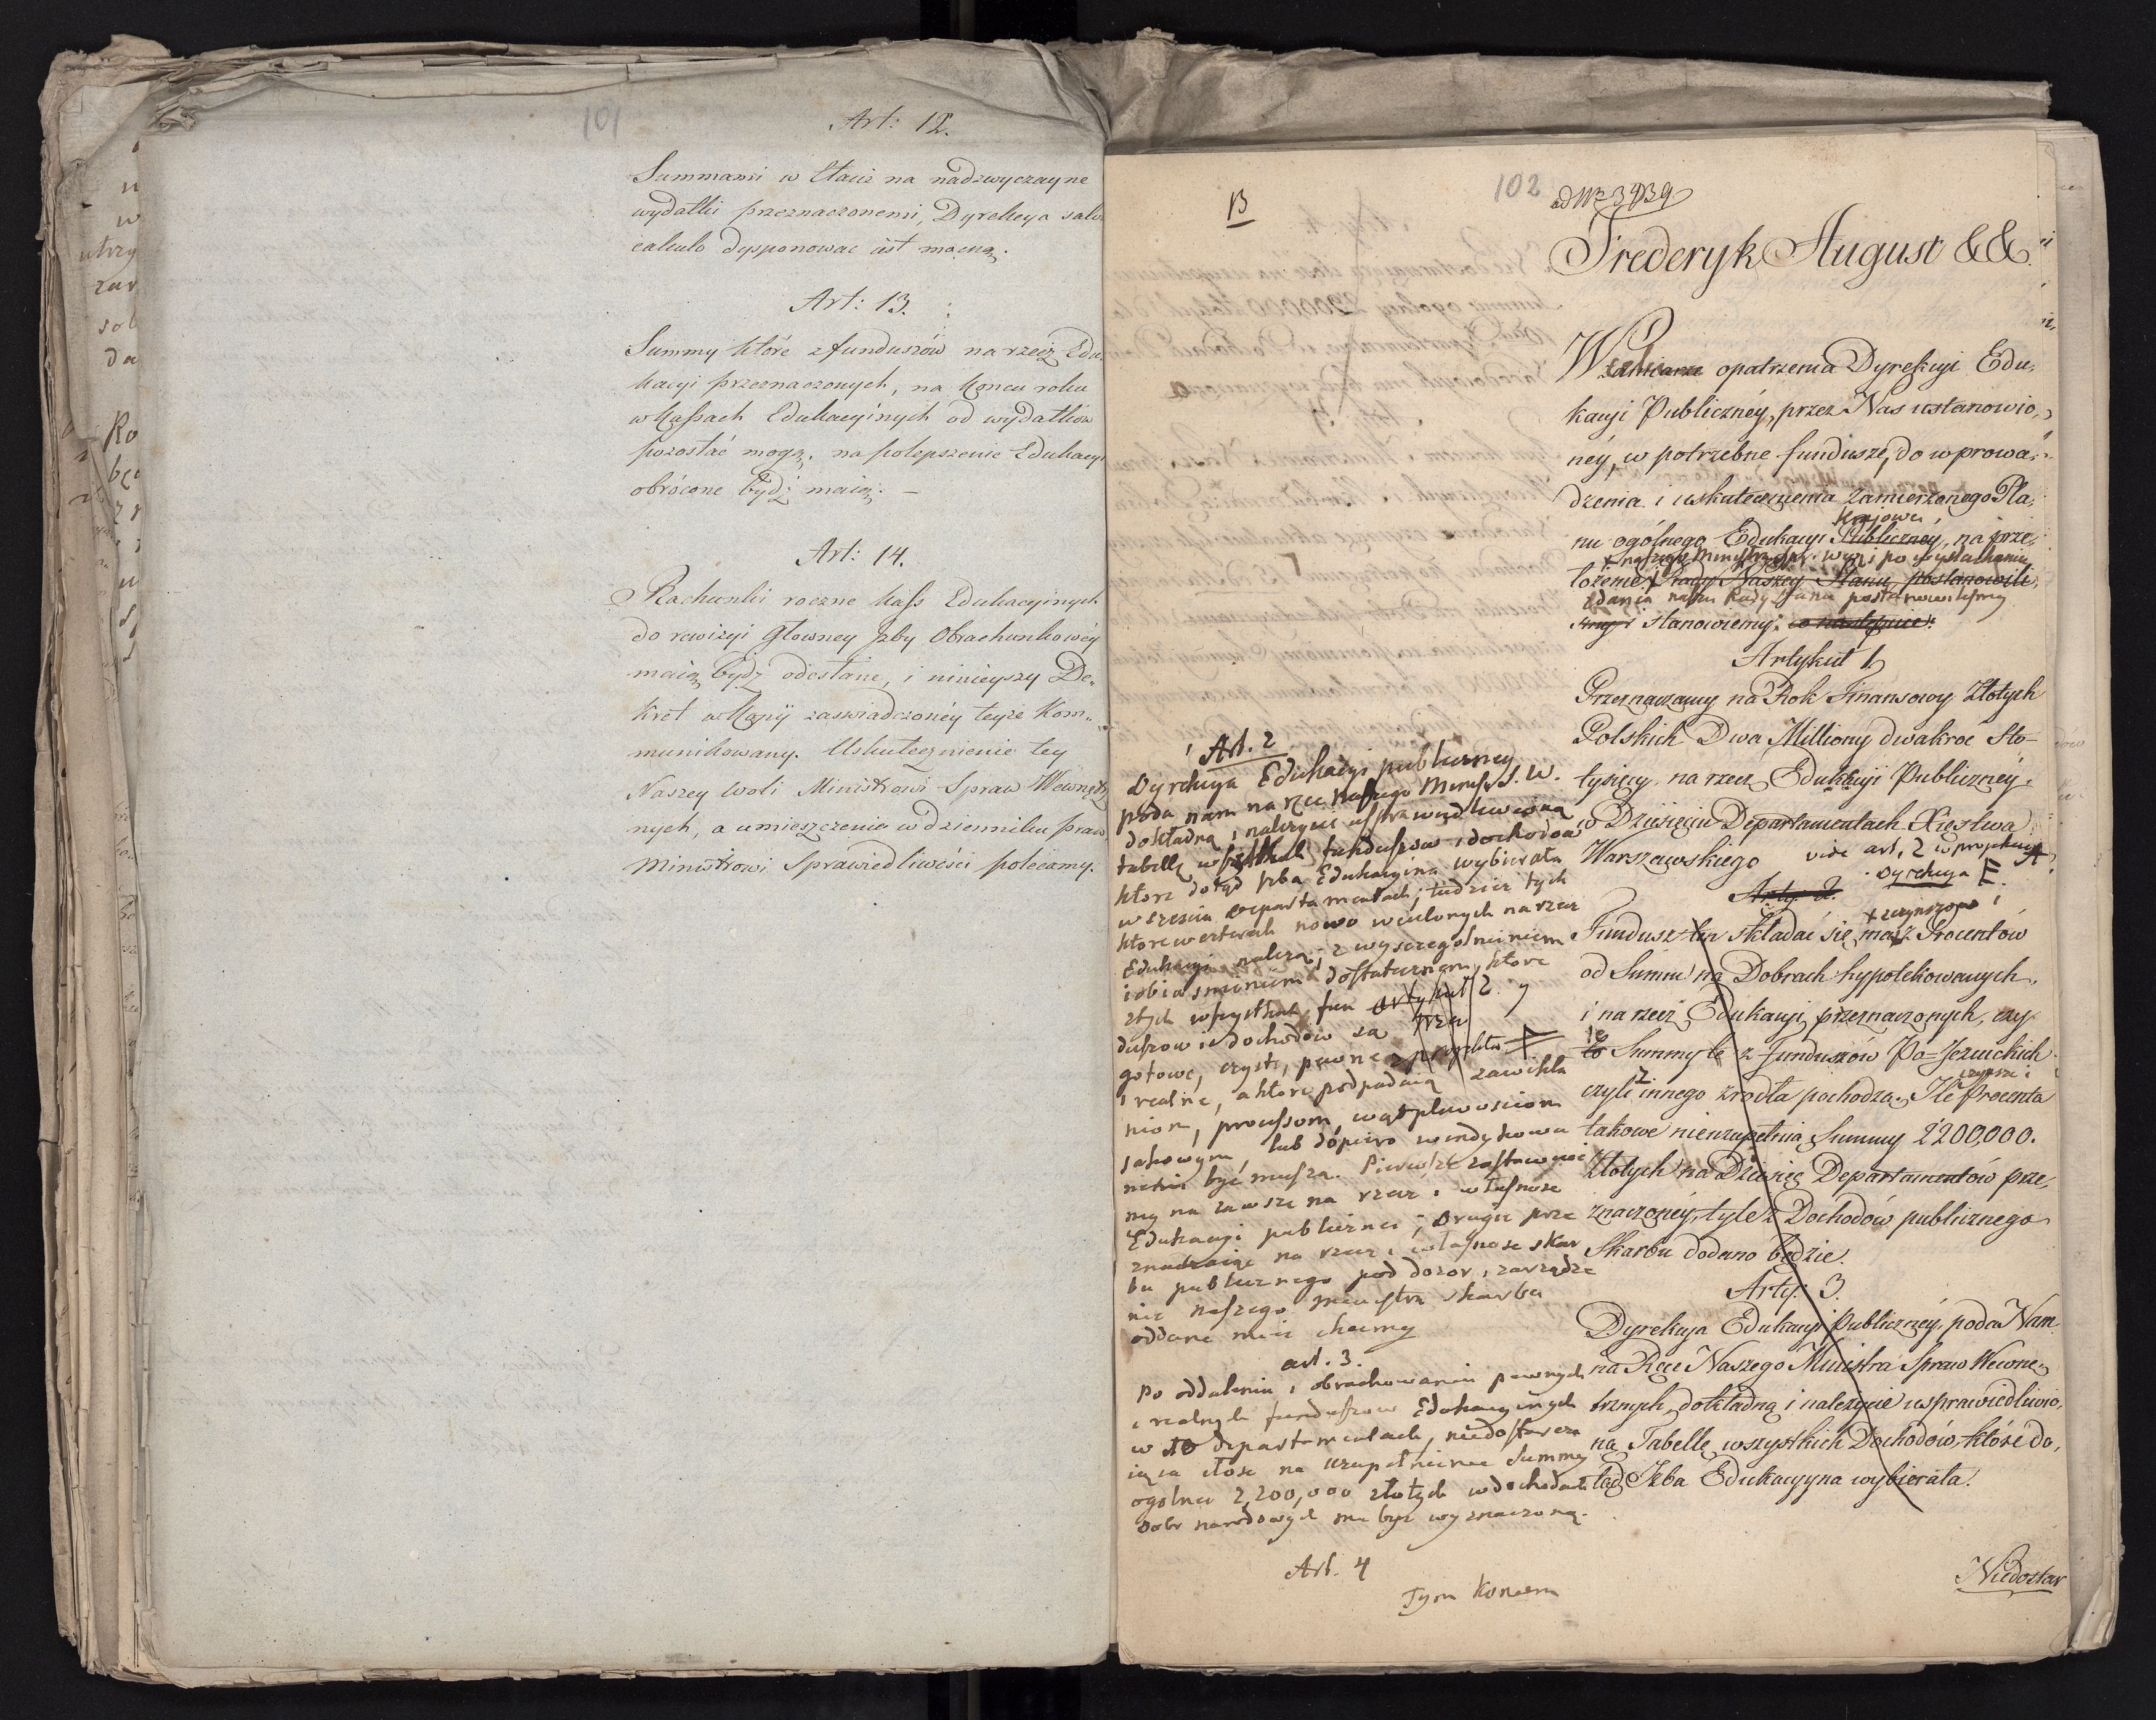 101
Art: 12.
Summami w Etacie na nadzwyczayne
wydatki przeznaczonemi, Dyrekcya salvo
calculo dysponować iest mocną.
Art: 13.
Summy które z funduszów na rzecz Edu„
kacyi przeznaczonych, na końcu roku
w Kassach Edukacyinych od wydatków
pozostać mogą, na polepszenie Edukacyi
obrócone bydź maią. —
Art: 14.
Rachunki roczne Kass Edukacyinych
do rewizyi Główney Izby Obrachunkowéy
maią bydź odesłane, i ninieyszy De„
kret w Kopij zaświadczonéy teyże kom„
munikowany. Uskutecznienie tey
Naszey woli Ministrowi Spraw Wewnętrz
nych, a umieszczenie w dzienniku praw
Ministrowi Sprawiedliwości polecamy.
B
102
ad Nr 3439
Frederyk August &&.
W zamiarze opatrzenia Dyrekcyi Edu„
kacyi Publicznéy, przez Nas ustanowio„
néy, w potrzebne fundusze, do wprowa„
dzenia i uskutecznienia zamierzonego Pla„
krajowei,
nu ogólnego Edukacyi Publiczney, na prze„
+ naszego Ministra spr. wew. i po wysłuchaniu
łożenie Rady Naszey Stanu, postanowili„
zdania naszei Rady stanu postanowilismy
śmy i stanowiemy: co następuie:
Artykuł 1.
Przeznaczamy na Rok Finansowy Złotych
Polskich Dwa Milliony dwakroć Sto„
tysięcy, na rzecz Edukacyi Publicznéy,
w Dziesięciu Departamentach Xięstwa
Warszawskiego vide art. 2 w projekcie A
Dyrekcya F.
Arty. 2.
+ czynszow i
Fundusz ten składać się ma z Procentów
od Summ na Dobrach hypotekowanych,
i na rzecz Edukacyi przeznaczonych, czy
te
to Summy te z Funduszów Po-Jezuickich
czynsze i
czyli z innego zrodła pochodzą. Jle Procenta
takowe niezupełnią Summy 2'200,000.
Złotych na Dziesięć Departamentów prze„
znaczonéy, tyle z Dochodów publicznego
Skarbu dodano będzie.
Arty: 3.
Dyrekcya Edukacyi Publicznéy, poda Nam
na Ręce Naszego Ministra Spraw Wewnę„
trznych, dokładną i należycie usprawiedliwio„
ną Tabellę wszystkich Dochodów, które do„
tąd Izba Edukacyyna wybierała.
Niedostar
Art. 2
Dyrekcya Edukacyi publiczney
poda nam na ręce naszego Ministra S. W.
dokładną i należycie usprawiedliwioną
tabellę wszystkich funduszow i dochodow
ktore dotąd Izba Edukacyina wybierała
w szesciu departamentach, tudzież tych
ktore w czterech nowo wcielonych na rzecz
Edukacyi należą; z wyszczegolnieniem
i obiasnieniem dostatecznem, ktore
z tych wszystkich fun Artykuł 2.
duszow i dochodow są
gotowe, czyste, pewne z projektu F
i realne, a ktore podpadaią zawikła
niom, processom, wątpliwosciom
iakowym, lub dopiero windykowa
nemi być muszą. Pierwsze zostawuie
my na zawsze na rzecz i własnosc
Edukacyi publicznei; drugie prze
znaczaiąc na rzecz i własnosc skar
bu publicznego pod dozor i zarządze
nie naszego Ministra skarbu
oddane miec chcemy
art. 3.
Po oddaleniu i obrachowaniu pewnych
i realnych funduszow Edukacyinych
w 10 departamentach, niedostarcza
iąca ilosc na uzupełnienie Summy
ogolnei 2,200,000 złotych w dochodach
dobr narodowych ma byc wyznaczoną.
Art. 4
Tym koncem